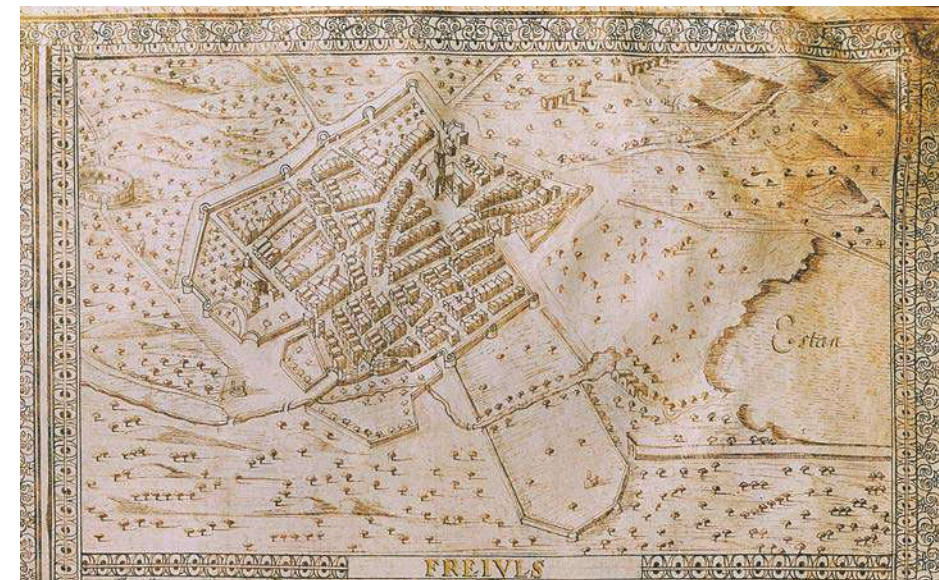 Estan
FREIVLS